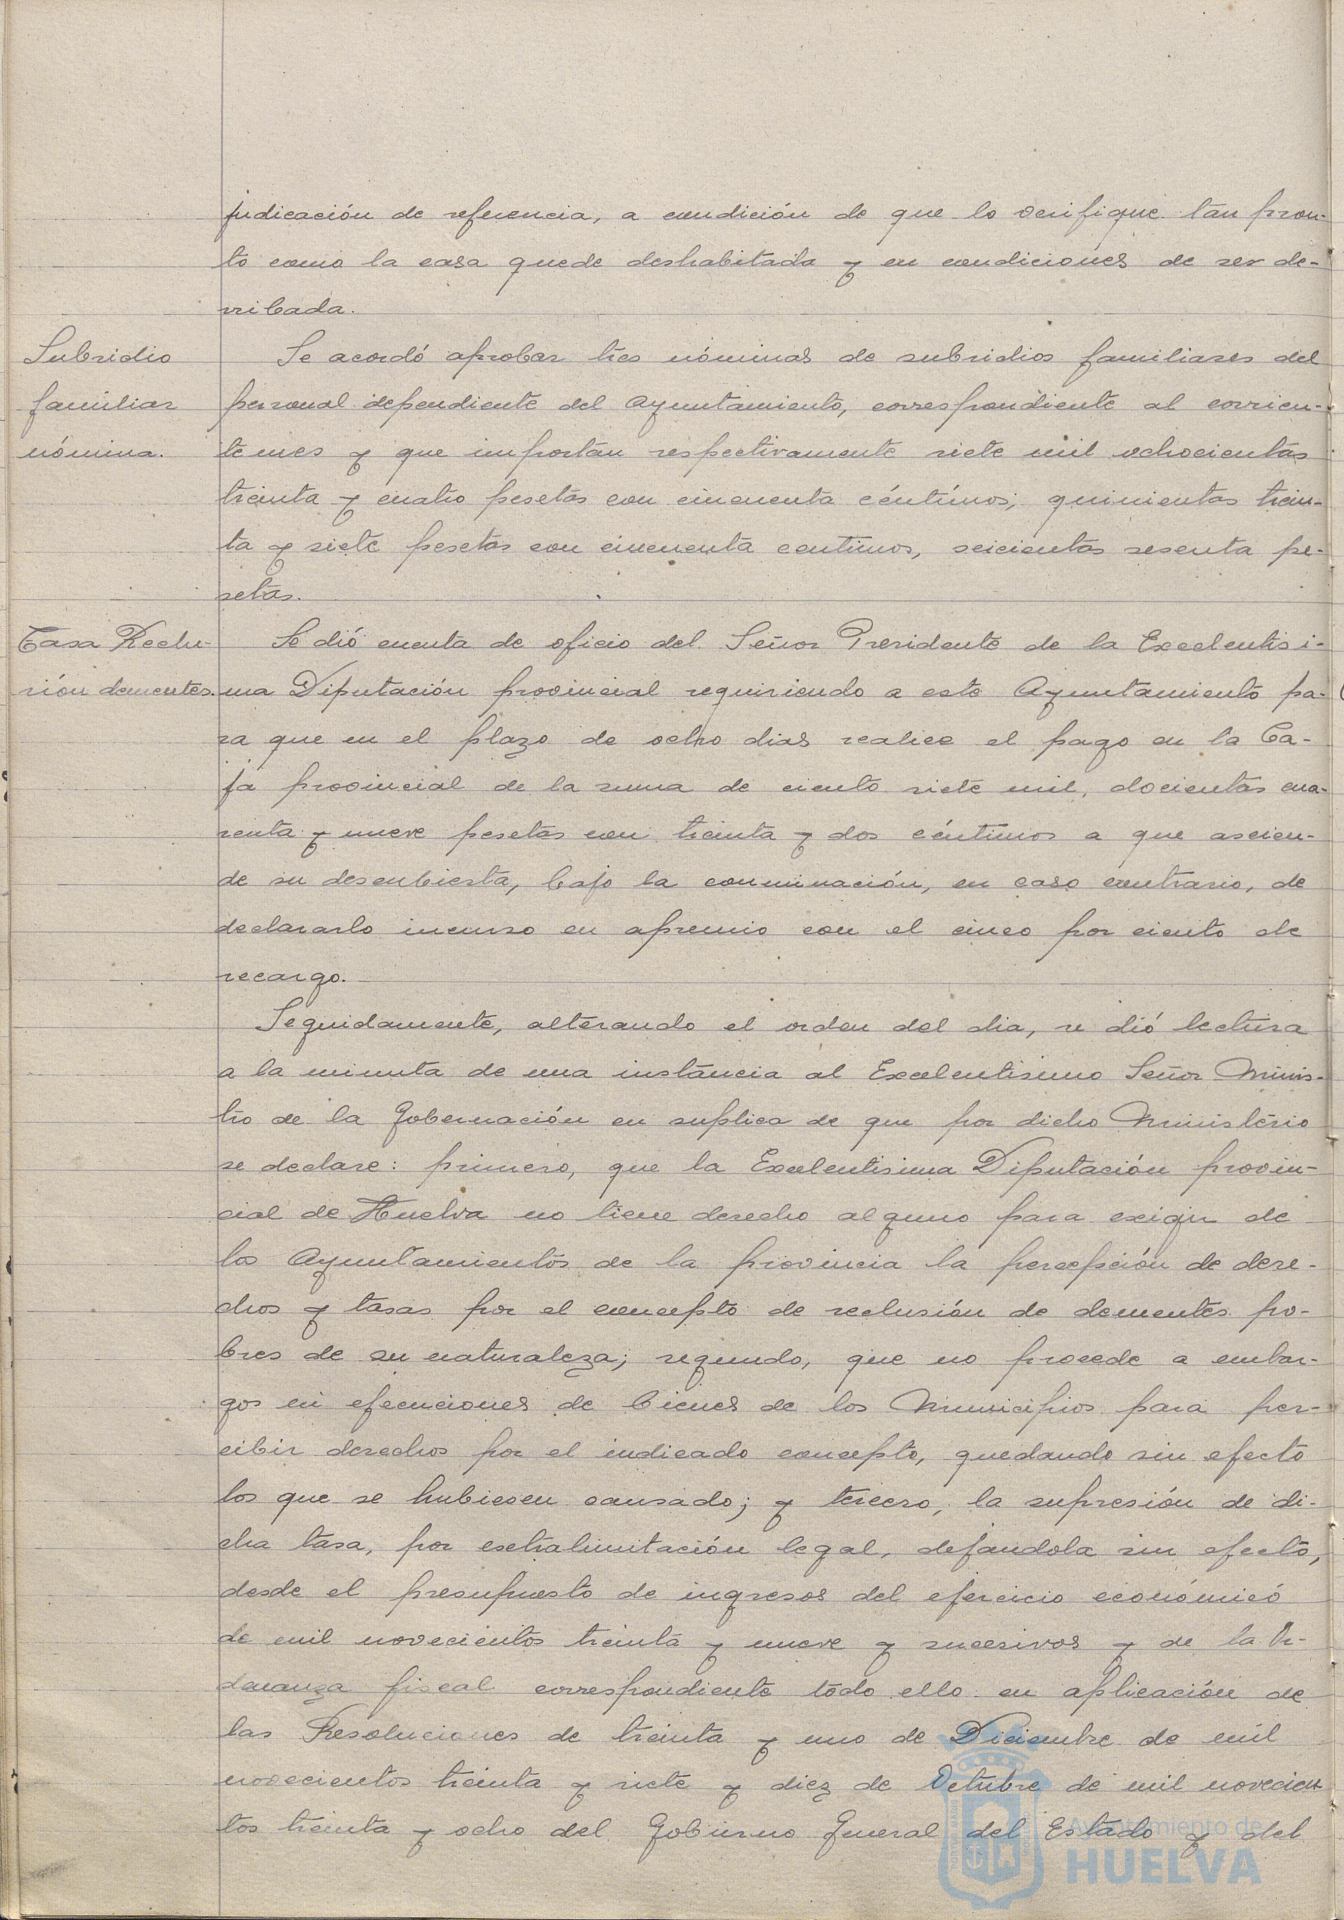 judicación de referencia, a condición de que lo verifique tan pron-
to como la casa quede deshabitada y en condiciones de ser de-
rribada.
Subsidio
familiar
nómina.
Se acordó aprobar tres nóminas de subsidios familiares del
personal dependiente del Ayuntamiento, correspondiente al corrien-
te mes y que importan respectivamente siete mil ochocientas
treinta y cuatro pesetas con cincuenta céntimos; quinientas trein-
ta y siete pesetas con cincuenta centimos, seicientas sesenta pe-
setas.
Tasa Reclu-
sión dementes.
Se dió cuenta de oficio del Señor Presidente de la Excelentisi-
ma Diputación provincial requiriendo a este Ayuntamiento pa-
ra que en el plazo de ocho dias realice el pago en la Ca-
ja provincial de la suma de ciento siete mil, docientas cua-
renta y nueve pesetas con treinta y dos céntimos a que ascien-
de su descubierta, bajo la conminación, en caso contrario, de
declararlo incurso en apremio con el cinco por ciento de
recargo.
Seguidamente, alterando el orden del dia, se dió lectura
a la minuta de una instancia al Excelentisimo Señor Minis-
tro de la Gobernación en suplica de que por dicho Ministerio
se declare: primero, que la Excelentisima Diputación provin-
cial de Huelva no tiene derecho alguno para exigir de
los Ayuntamientos de la provincia la percepción de dere-
chos y tasas por el concepto de reclusión de dementes po-
bres de su naturaleza; segundo, que no procede a embar-
gos ni ejecuciones de bienes de los Municipios para per-
cibir derechos por el indicado concepto, quedando sin efecto
los que se hubiesen causado; y tercero, la supresión de di-
cha tasa, por extralimitación legal, dejandola sin efecto,
desde el presupuesto de ingresos del ejercicio económicó
de mil novecientos treinta y nueve y sucesivos y de la Or-
denanza fiscal correspondiente todo ello en aplicación de
las Resoluciones de treinta y uno de Diciembre de mil
novecientos treinta y siete y diez de Octubre de mil novecien
tos treinta y ocho del Gobierno General del Estado y del
Ayuntamiento de
HUELVA